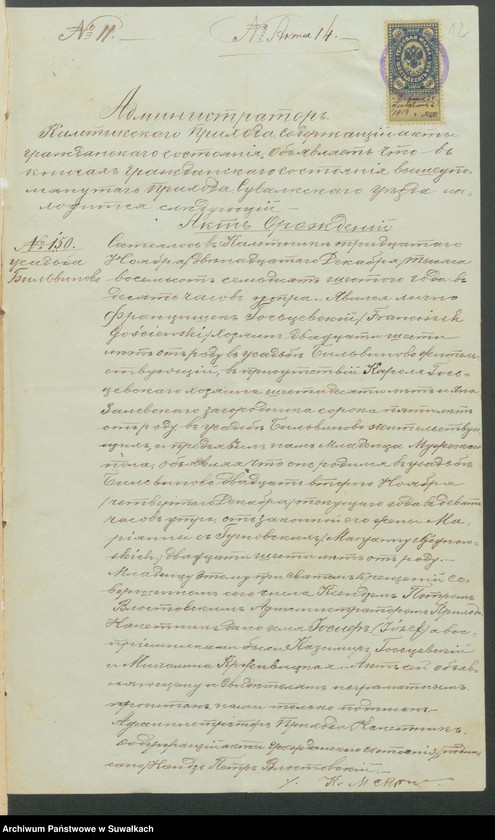 № 11.
№ Акта 14.
12
Администраторъ
Калетникскаго Прихода содержащій акты
гражданскаго состоянія, объявляетъ что въ
книгахъ гражданскаго состоянія вышеупо-
мянутаго Прихода Сувалкскаго уѣзда на-
ходится слѣдующій
Актъ о рожденіи
№ 150.
усадьба
Бильвиново
Состоялось въ Калетникѣ тридцатаго
Ноября /двѣнадцатаго Декабря/ тысяча
восемьсотъ семьдесятъ шестого года въ
десять часовъ утра. Явился лично
Францишекъ Госьцевскій /Franciszek
Gościewski/ Хозяинъ двадцати шести
лѣтъ отъ роду въ усадьбѣ Бильвиново житель-
ствующій, въ присутствіи Кароля Гось-
цевскаго хозяина шестидесяти лѣтъ и Яна
Залевскаго загородника сорока пяти лѣтъ
отъ роду въ усадьбѣ Бильвиново жительствую-
щихъ, и предъявилъ намъ младенца мужескаго
пола, объявляя что онъ родился въ усадьбѣ
Бильвиново двадцать второго Ноября
/четвертаго Декабря/ текущаго года въ девять
часовъ утра, отъ законной его жены Ма-
ріанны съ
двадцати шести лѣтъ отъ роду.
Младенцу этому при святомъ крещеніи со-
вершенномъ сего числа Ксендзомъ Петромъ
Влостовскимъ Администраторомъ Прихода
Калетникъ дано имя Іосифъ /Józef/ а вос-
пріемниками были Казимиръ Госьцевскій
и Михалина Кржевицкая. Актъ сей объяв-
ляющему и свидѣтелямъ неграмотнымъ
прочитанъ нами только подписанъ
Администраторъ Прихода Калетникъ
содержащій акты гражданскаго состоянія /подпи-
сано/ Ксендзъ Петръ Влостовскій
Archiwum Państwowe w Suwałkach